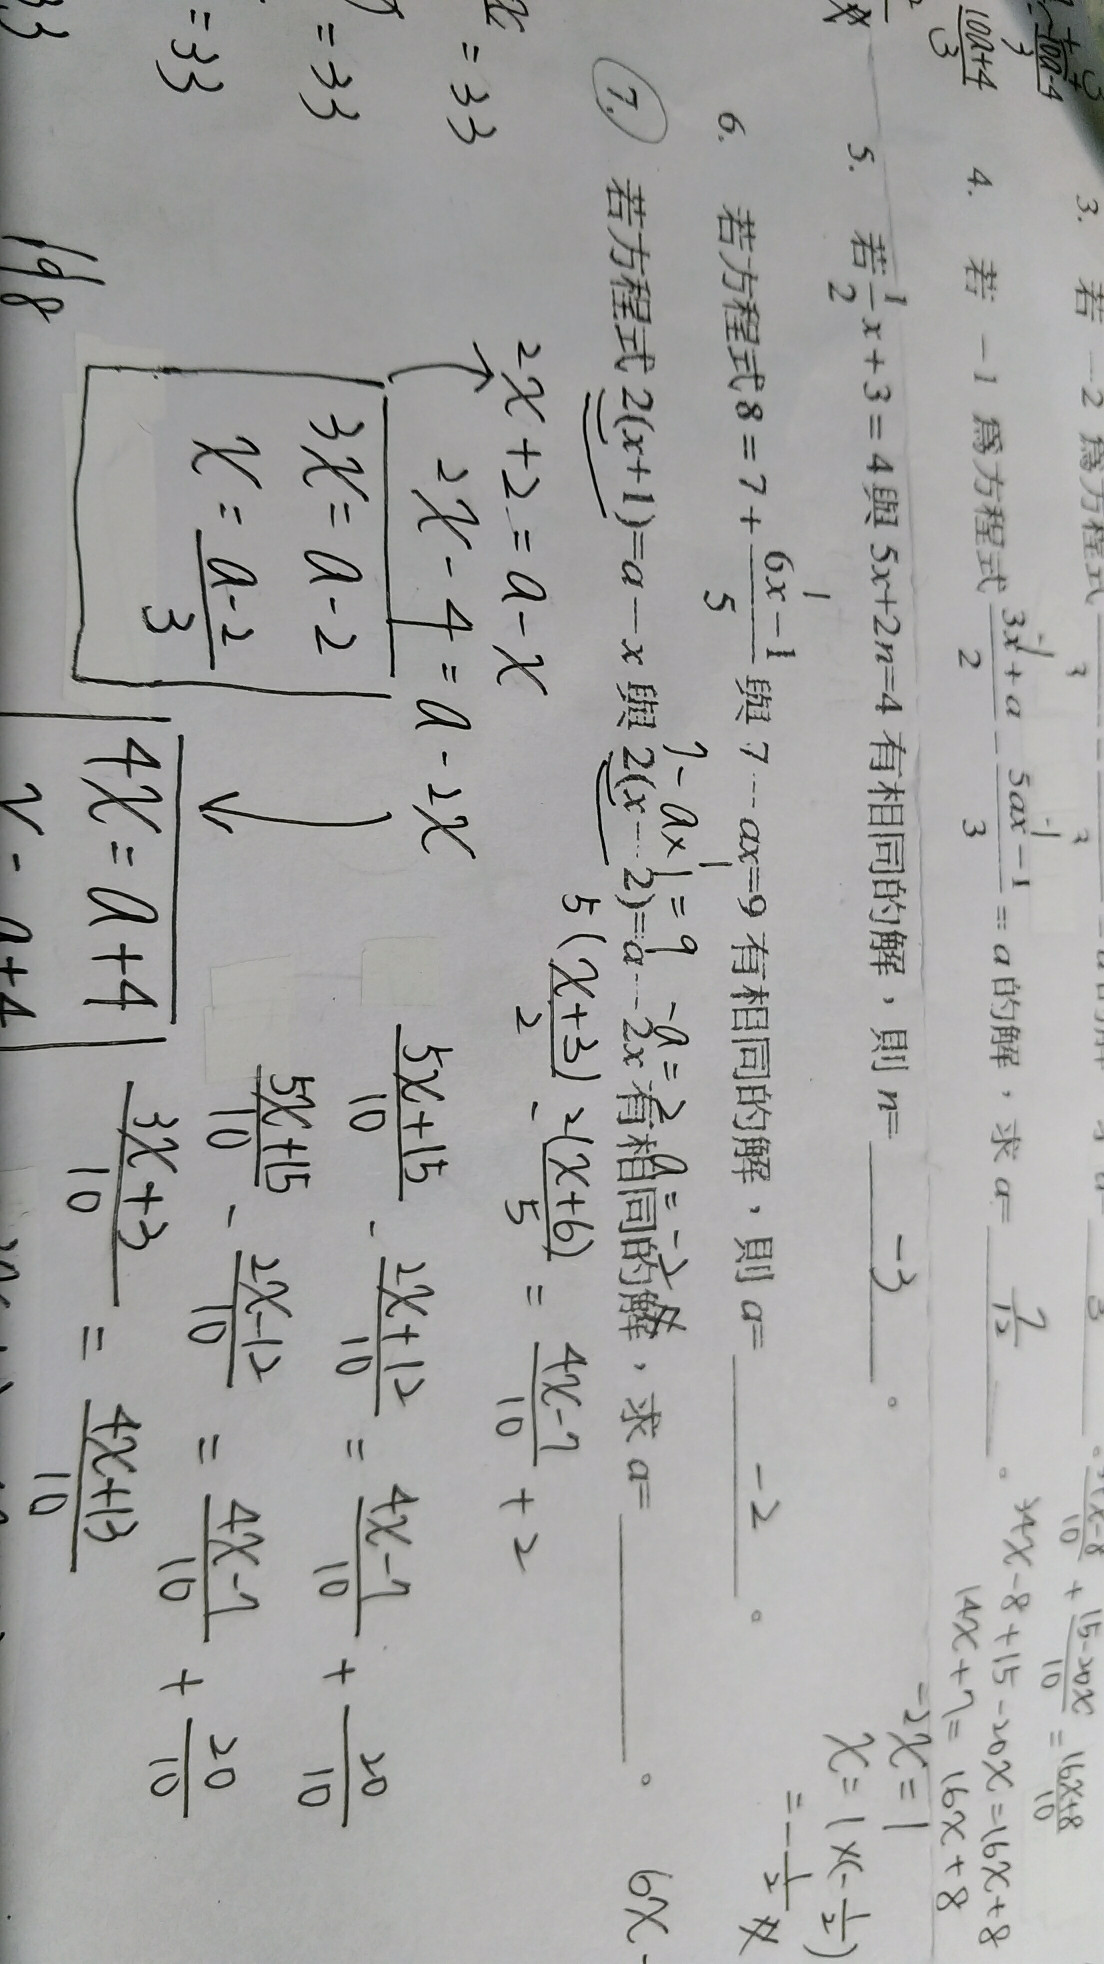 3. 若 -2 為方程式
4. 若 -1 為方程式 (3x+a)/2 - (5ax-1)/3 = a的解，求 a= 7/12 。
5. 若 1/2 x+3=4與 5x+2n=4 有相同的解，則 n= -3 。
6. 若方程式 8=7+ (6x-1)/5 與 7-ax=9 有相同的解，則 a= -2 。
7-a×1=9 -a=2 a=-2
7. 若方程式 2(x+1)=a-x 與 2(x-2)=a-2x 有相同的解，求 a= 。
2x+2=a-x
2x-4=a-2x
3x=a-2
x= (a-2)/3
4x=a+4
5(x+3)/2 - 2(x+6)/5 = (4x-7)/10 +2
(5x+15)/10 - (2x+12)/10 = (4x-7)/10 + 20/10
(5x+15)/10 - (2x-12)/10 = (4x-7)/10 + 20/10
(3x+3)/10 = (4x+13)/10
+ (15-20x)/10 = (16x+8)/10
34x-8+15-20x=16x+8
14x+7=16x+8
-2x=1
x=1×(-1/2)
=-1/2
6x-
=33
=33
=33